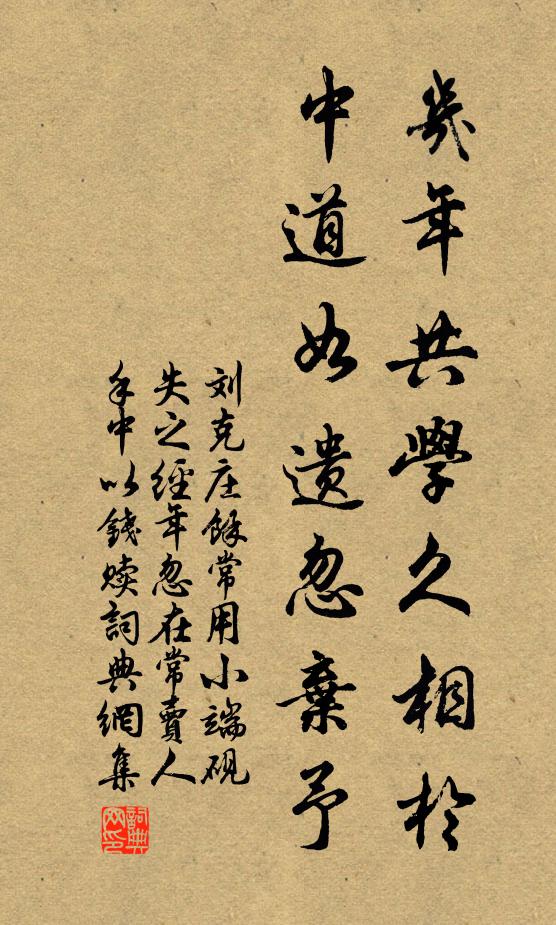 幾年共學久相於
中道如遺忽棄予
刘克庄餘常用小端硯
失之經年忽在常賣人
手中以錢赎詞典網集
詞典
网印